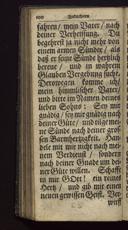 100 Andachten
fahren/ mein Vater/ nach
deiner Verheissung. Du
begehrest ja nicht mehr von
einem armen Sünder/ als
daß er seine Sünde hertzlich
bereue/ und in wahrem
Glauben Vergebung suche.
Derowegen komme ich/
mein himmlischer Vater/
und bitte im Namen deines
lieben Sohns: Sey mir
gnädig/ sey mir gnädig nach
deiner Güte/ und tilge mei-
ne Sünde nach deiner gros-
sen Barmhertzigkeit. Han-
dele mit mir nicht nach mei-
nem Verdienst/ sondern
nach deiner Gnade um dei-
ner Güte willen. Schaffe
in mir GOtt/ ein reines
Hertz/ und gib mir einen
neuen gewissen Geist. Ver-
wirff